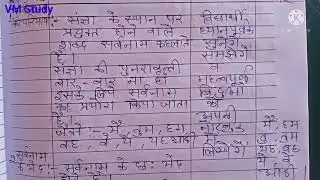 VM Study
संज्ञा के स्थान पर
प्रयुक्त होने वाले
शब्द सर्वनाम कहलाते
हैं।
संज्ञा की पुनरावृत्ती
बार बार ना हो
इसके लिये सर्वनाम
का प्रयोग किया जाता
है।
जैसे :- मैं, तुम, हम
वह, वे, ये, यह आदी
सर्वनाम के भेद :- सर्वनाम के छः भेद
विद्यार्थी
ध्यानपूर्वक
सुनेंगे
समझेंगे
व
महत्वपूर्ण
बिंदुओं
को
अपनी
में
लिखेंगे।
मैं, हम
तू, तुम
यह, वह
ये, वे